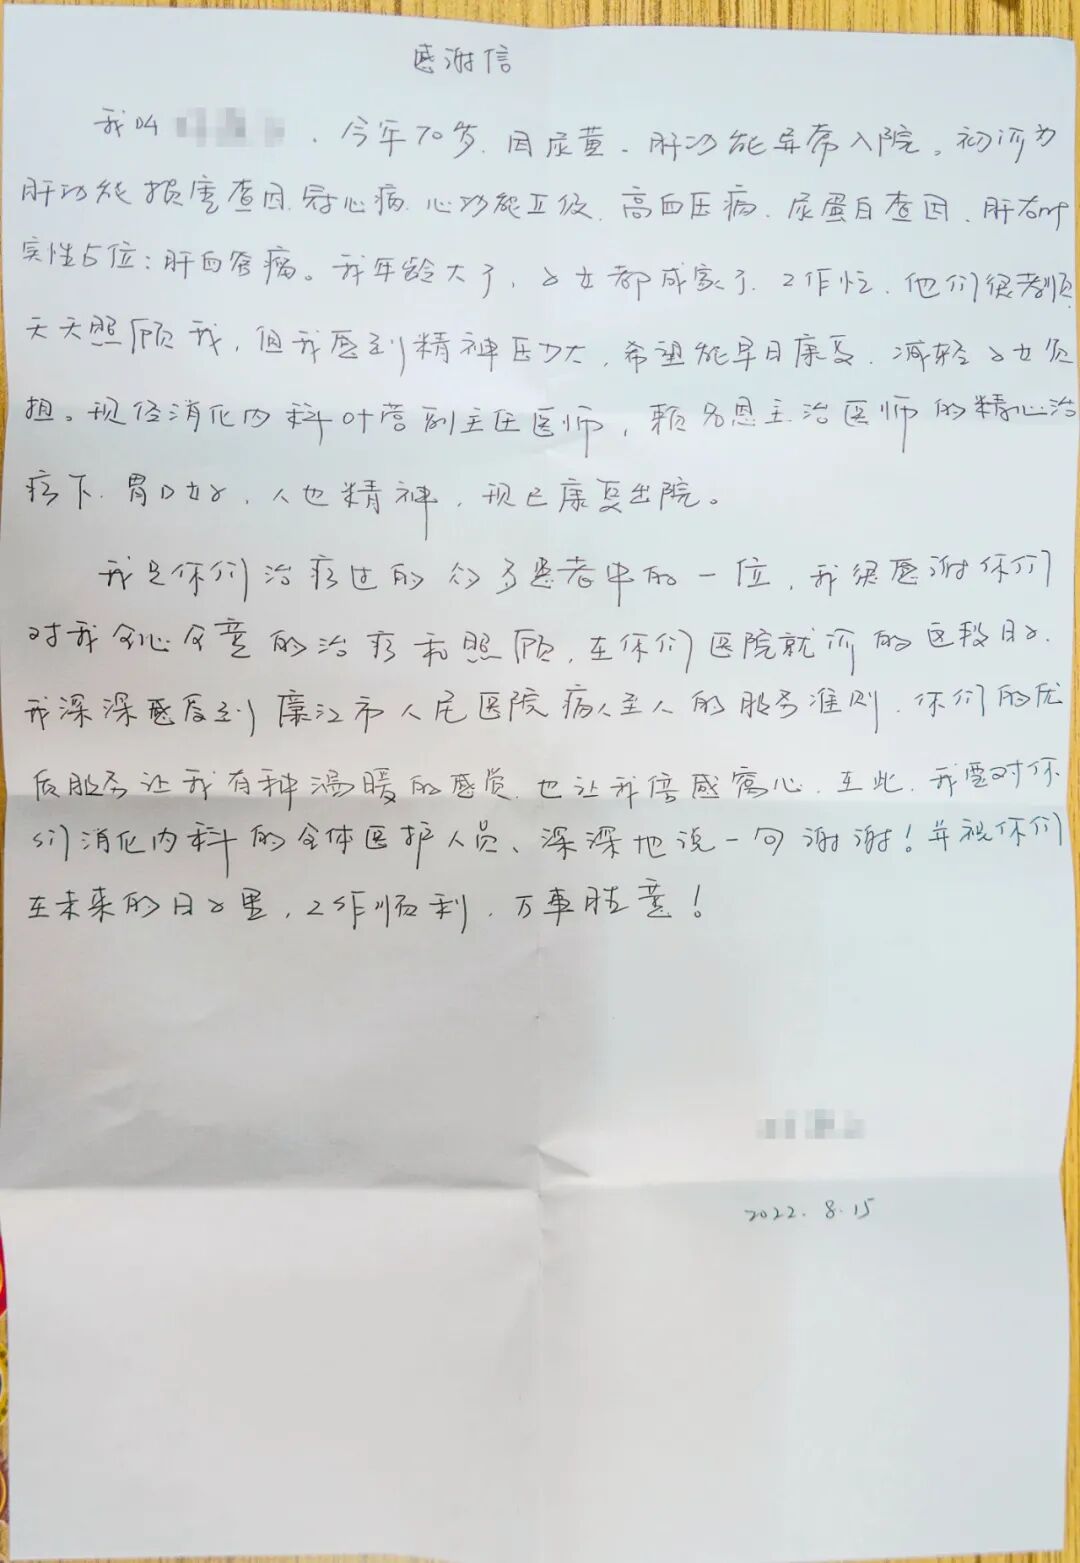 感谢信
我叫 ，今年70岁、因尿黄、肝功能异常入院。初诊为
肝功能损害查因、冠心病、心功能II级、高血压病、尿蛋白查因、肝右叶
实性占位：肝血管瘤。我年龄大了，子女都成家了、工作忙、他们很孝顺
天天照顾我，但我感到精神压力大，希望能早日康复、减轻子女负
担。现经消化内科叶营副主任医师，赖名恩主治医师的精心治
疗下、胃口好，人也精神，现已康复出院。
我是你们治疗过的众多患者中的一位，我很感谢你们
对我全心全意的治疗和照顾，在你们医院就诊的这段日子、
我深深感受到廉江市人民医院病人至上的服务准则、你们的优
质服务让我有种温暖的感觉、也让我倍感窝心、在此、我要对你
们消化内科的全体医护人员、深深地说一句谢谢！并祝你们
在未来的日子里，工作顺利，万事胜意！
2022.8.15